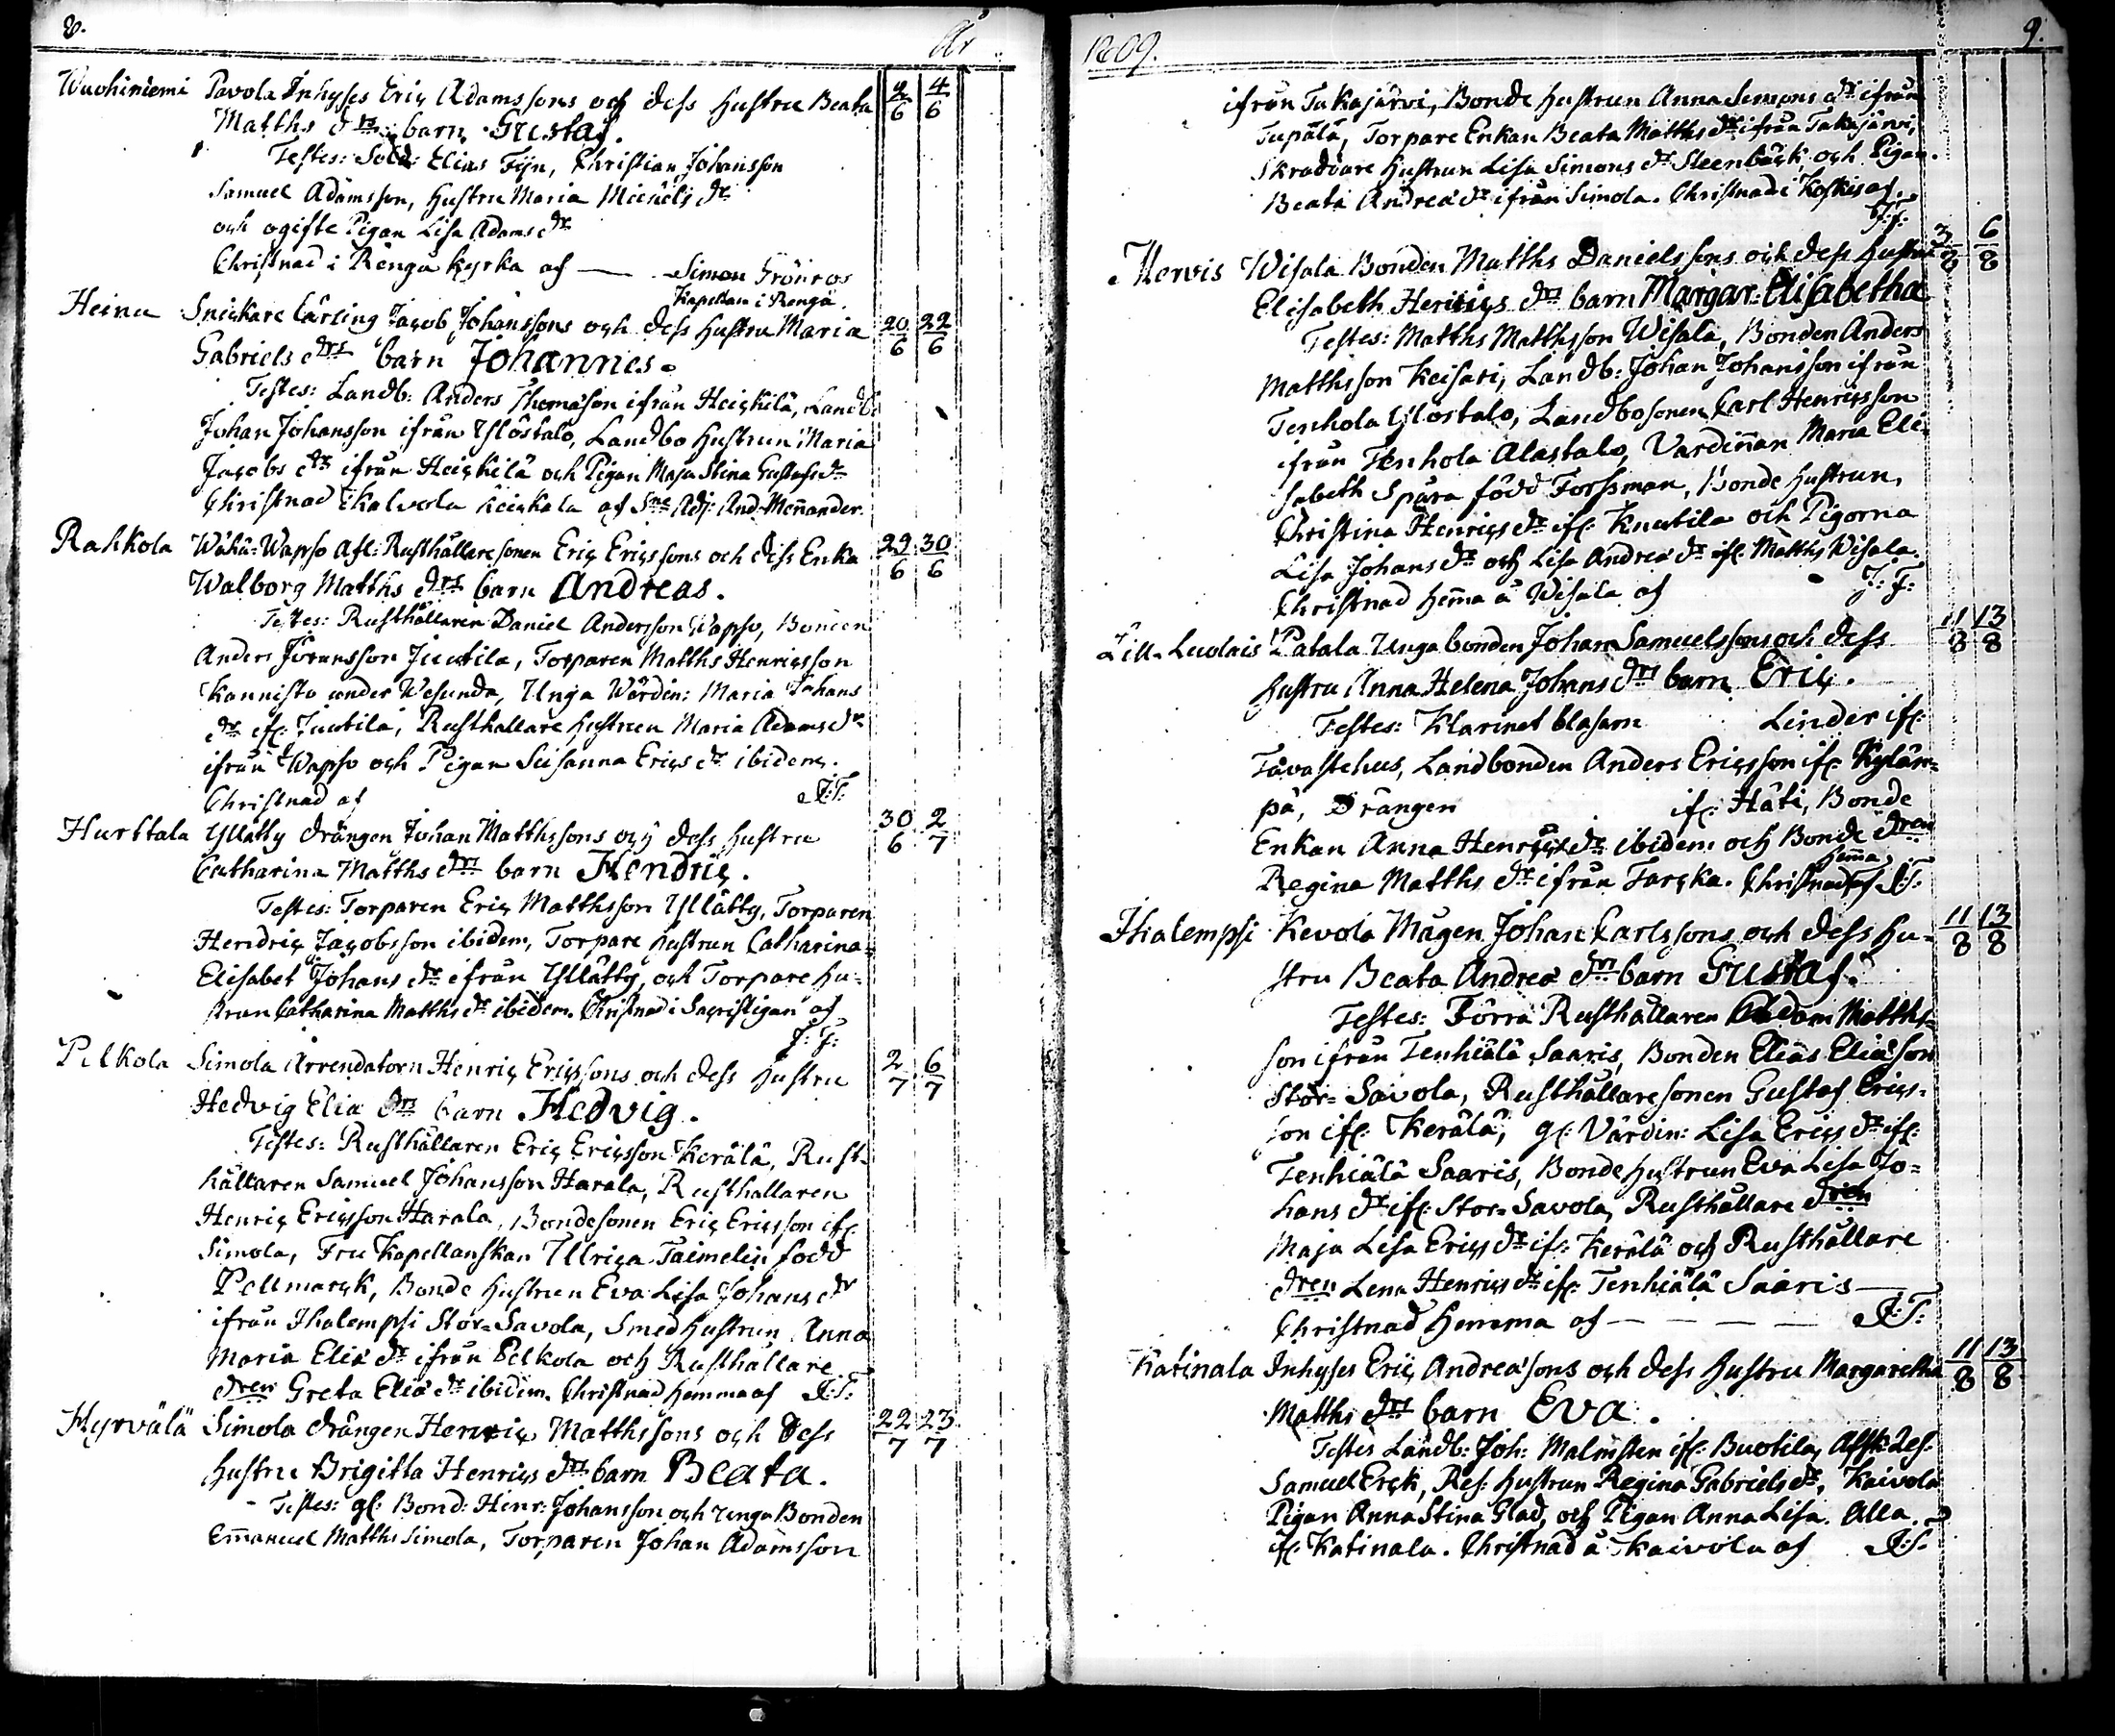 8.
År
Wuohiniemi Pavola Inhyses Eric Adamssons och dess hustru Beata 2/6 4/6
Matths drs barn Gustaf.
Testes: Sold: Elias Fijn, Christian Johansson
Samuel Adamsson, hustru Maria Michels dr
och ogifte Pigan Lisa Adams dr
Christnad i Rengå kyrka af — Simon Grönroos
Kapellan i Rengå.
Heinu Snickare lärling Jacob Johanssons och dess hustru Maria 20/6 22/6
Gabriels drs barn Johannes.
Testes: Landb: Anders Thomasson ifrån Heickilä, Landb:
Johan Johansson ifrån Ylöstalo, Landbo hustrun Maria
Jacobs dr ifrån Heickilä och Pigan Maja Stina Gustafs dr
Christnad i Kalvola af Adj: And: Meñander.
Rahkola Wähä-Wapso Afl: Rusthållare sonen Eric Ericssons och dess Enka 29/6 30/6
Walborg Matths drs barn Andreas.
Testes: Rusthållaren Daniel Andersson Wapso, Bonden
Anders Göransson Juutila, Torparen Matths Henricsson
Kannisto under Wesunda, Unga Wärdin: Maria Johans
dr ifr: Juutila, Rusthållare hustrun Maria Adams dr
ifrån Wapso och Pigan Susanna Erics dr ibidem.
Christnad af J:T:
Hurttala Yllätty drängen Johan Matthssons och dess hustru 30/6 2/7
Catharina Matths drs barn Hendric.
Testes: Torparen Eric Matthsson Yllätty, Torparen
Hendric Jacobsson ibidem, Torpare hustrun Catharina
Elisabet Johans dr ifrån Yllätty, och Torpare hu-
strun Catharina Matths dr ibidem. Christnad i Sacristigan af
J:F:
Pelkola Simola Arrendatorn Henric Ericssons och dess hustru 2/7 6/7
Hedvig Elia drs barn Hedvig.
Testes: Rusthållaren Eric Ericsson Kerälä, Rust-
hållaren Samuel Johansson Harala, Rusthållaren
Henric Ericsson Harala, Bondesonen Eric Ericsson ifr:
Simola, Fru Kapellanskan Ulrica Taimelin född
Pellmarck, Bonde hustrun Eva Lisa Johans dr
ifrån Ihalempsi Stor-Savola, Smedhustrun Anna
Maria Elia dr ifrån Pelkola och Rusthållare
dren Greta Elia dr ibidem. Christnad hemma af J:T:
Hyrvälä Simola drängen Henric Matthssons och dess 22/7 23/7
hustru Brigitta Henrics drs barn Beata.
Testes: gl: Bond: Henr: Johansson och unga Bonden
Em̃anuel Matths Simola, Torparen Johan Adamsson
1809.
9.
ifrån Takajärvi, Bonde hustrun Anna Simons dr ifrån
Tupälä, Torpare Enkan Beata Matths dr ifrån Takajärvi,
Skräddare hustrun Lisa Simons dr Steenbäck, och Pigan
Beata Andreæ dr ifrån Simola. Christnad i af
J:F:
Mervis Wisala Bonden Matths Danielssons och dess hustru 3/8 6/8
Elisabeth Henrics drs barn Margar: Elisabetha
Testes: Matths Matthsson Wisala, Bonden Anders
Matthsson Keisari, Landb: Johan Johansson ifrån
Tenhola Ylöstalo, Landbosonen Carl Henricsson
ifrån Tenhola Alastalo, Värdiñan Maria Eli-
sabeth Spåra född Forssman, Bonde hustrun,
Christina Henrics dr ifr: Knutila och Pigorna
Lisa Johans dr och Lisa Andreæ dr ifr: Matths Wisala.
Christnad hem̃a å Wisala af J:F:
Lill-Luolais Patala Unga bonden Johan Samuelssons och dess 11/8 13/8
hustru Anna Helena Johans drs barn Eric.
Testes: Klarinet blåsarn Linder ifr:
Tavastehus, Landbonden Anders Ericsson ifr: Kylän-
pä, Drängen ifr: Häti, Bonde
Enkan Anna Henrics dr ibidem och Bonde dren
Regina Matths dr ifrån Tarcka. Christnad hem̃a af J:T:
Ihalempsi Kevola Mågen Johan Carlssons och dess hu- 11/8 13/8
stru Beata Andreæ drs barn Gustaf.
Testes: Förra Rusthållaren Adam Matths-
son ifrån Tenhiälä Saaris, Bonden Elias Eliæson
Stor-Savola, Rusthållaresonen Gustaf Erics-
son ifr: Kerälä, gl: Värdin: Lisa Erics dr ifr:
Tenhiälä Saaris, Bonde hustrun Eva Lisa Jo-
hans dr ifr: Stor-Savola, Rusthållare dren
Maja Lisa Erics dr ifr: Kerälä och Rusthållare
dren Lena Henrics dr ifr: Tenhiälä Saaris —
Christnad hemma af — — — — J:T:
Katinala Inhyses Eric Andreæsons och dess hustru Margaretha 11/8 13/8
Matths drs barn Eva.
Testes Landb: Joh: Malmsten ifr: Buotila, Afsk: Res:
Samuel Erck, Res: hustrun Regina Gabriels dr, Kaivola
Pigan Anna Stina Glad, och Pigan Anna Lisa. Alla
ifr: Katinala. Christnad å Kaivola af J:T: